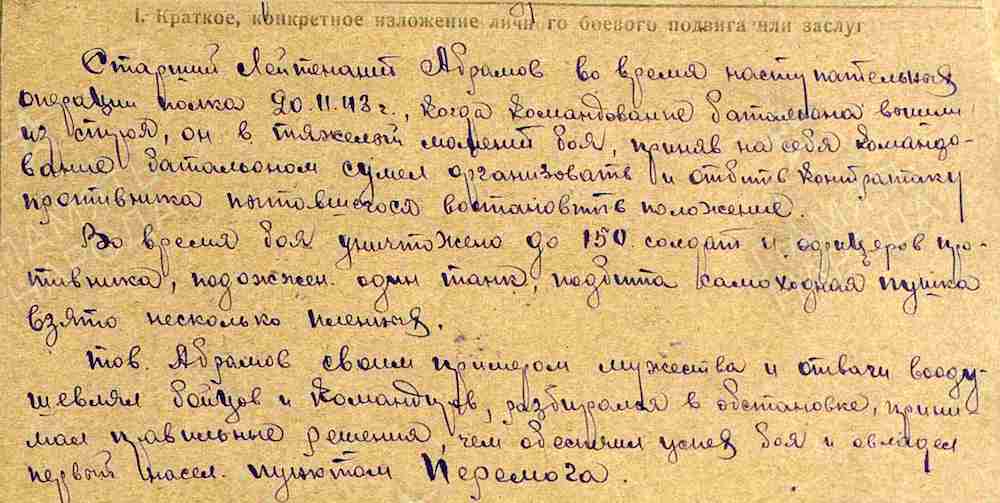 I. Краткое, конкретное изложение личного боевого подвига или заслуг
Старший Лейтенант Абрамов во время наступательных
операции полка 20.11.43 г., когда командование батальона вышли
из строя, он в тяжелый момент боя, приняв на себя командо-
вание батальоном сумел организовать и отбить контратаку
противника пытовшегося востановить положение.
Во время боя уничтожено до 150 солдат и офицеров про-
тивника, подожжен один танк, подбита самоходная пушка
взято несколько пленных.
тов. Абрамов своим примером мужества и отваги вооду-
шевлял бойцов и командиров, разбирался в обстановке, прини
мал правильные решения, чем обеспечил успех боя и овладел
первый насел. пунктом Перемога.